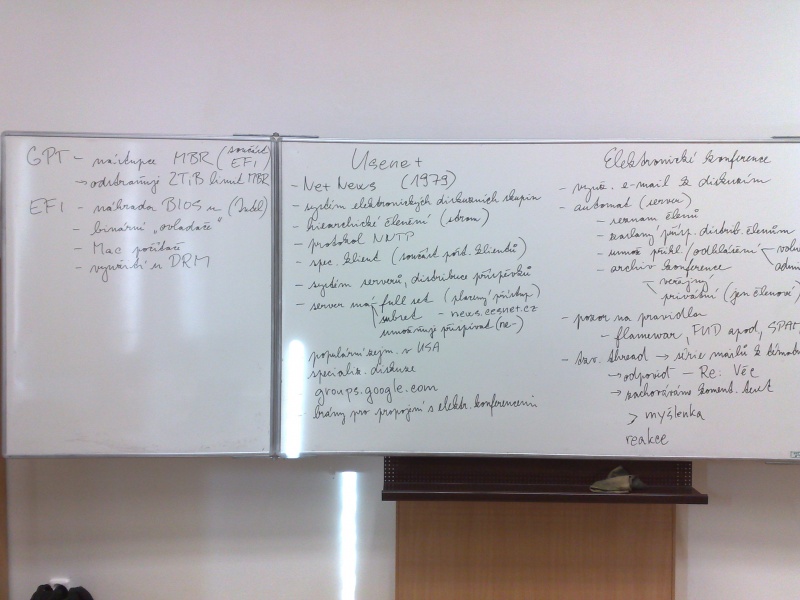 GPT - nástupce MBR (součást EFI)
→ odstraňují 2TiB limit MBR
EFI - náhrada BIOSu (Intel)
- binární "ovladače"
- Mac počítače
- využití u DRM
Usenet
- Net News (1979)
- systém elektronických diskuzních skupin
- hierarchické členění (strom)
- protokol NNTP
- spec. klient (součást pošt. klientů)
- systém serverů, distribuce příspěvků
- server má full set (placený přístup)
subset - news.cesnet.cz
umožňují přispívat (ne-)
populární zejm. v USA
specializ. diskuze
groups.google.com
- brány pro propojení s elektr. konferencemi
Elektronické konference
- využ. e-mail k diskuzím
- automat (server)
- seznam členů
- zaslaný přísp. distrib. členům
- umož přihl./odhlášení
- archiv konference
veřejný
privátní (jen členové)
- pozor na pravidla
- flamewar, FUD apod, SPAM
- tzv. thread → série mailů k tématu
→ odpověď - Re: Věc
→ zachováváme koment. text
> myšlenka
reakce